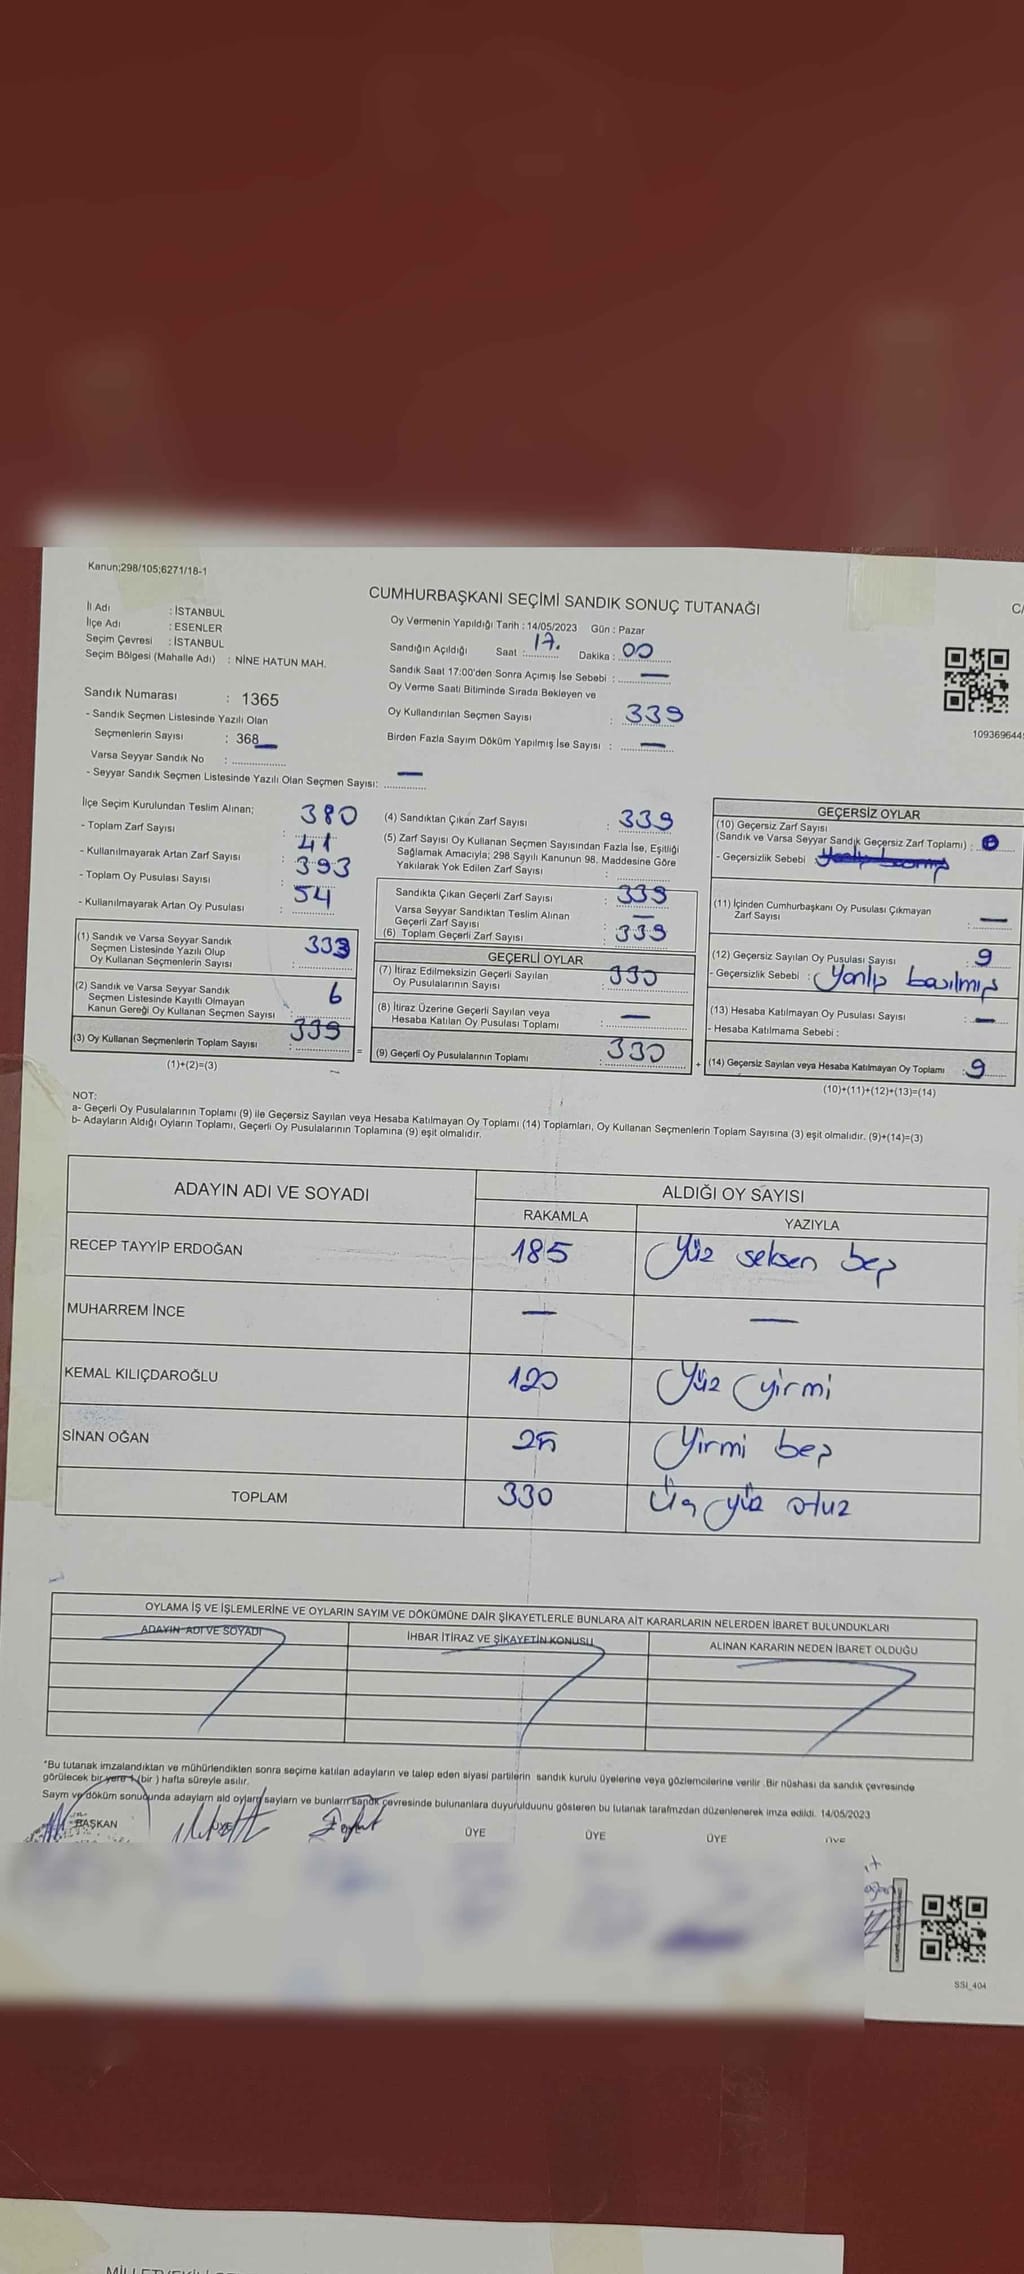 Kanun;298/105;6271/18-1
CUMHURBAŞKANI SEÇİMİ SANDIK SONUÇ TUTANAĞI
C/
İl Adı : İSTANBUL
İlçe Adı : ESENLER
Seçim Çevresi : İSTANBUL
Seçim Bölgesi (Mahalle Adı) : NİNE HATUN MAH.
Sandık Numarası : 1365
- Sandık Seçmen Listesinde Yazılı Olan
Seçmenlerin Sayısı : 368
Varsa Seyyar Sandık No :
- Seyyar Sandık Seçmen Listesinde Yazılı Olan Seçmen Sayısı: —
Oy Vermenin Yapıldığı Tarih : 14/05/2023 Gün : Pazar
Sandığın Açıldığı Saat : 17. Dakika : 00
Sandık Saat 17:00'den Sonra Açımış İse Sebebi : —
Oy Verme Saati Bitiminde Sırada Bekleyen ve
Oy Kullandırılan Seçmen Sayısı : 339
Birden Fazla Sayım Döküm Yapılmış İse Sayısı : —
109369644
İlçe Seçim Kurulundan Teslim Alınan;
- Toplam Zarf Sayısı : 380
- Kullanılmayarak Artan Zarf Sayısı : 41
- Toplam Oy Pusulası Sayısı : 393
- Kullanılmayarak Artan Oy Pusulası : 54
(1) Sandık ve Varsa Seyyar Sandık
Seçmen Listesinde Yazılı Olup
Oy Kullanan Seçmenlerin Sayısı :
(2) Sandık ve Varsa Seyyar Sandık
Seçmen Listesinde Kayıtlı Olmayan
Kanun Gereği Oy Kullanan Seçmen Sayısı : 6
(3) Oy Kullanan Seçmenlerin Toplam Sayısı : 339
(1)+(2)=(3)
(4) Sandıktan Çıkan Zarf Sayısı : 339
(5) Zarf Sayısı Oy Kullanan Seçmen Sayısından Fazla İse, Eşitliği
Sağlamak Amacıyla; 298 Sayılı Kanunun 98. Maddesine Göre
Yakılarak Yok Edilen Zarf Sayısı :
Sandıkta Çıkan Geçerli Zarf Sayısı : 339
Varsa Seyyar Sandıktan Teslim Alınan
Geçerli Zarf Sayısı : —
(6) Toplam Geçerli Zarf Sayısı : 339
GEÇERLİ OYLAR
(7) İtiraz Edilmeksizin Geçerli Sayılan
Oy Pusulalarının Sayısı : 330
(8) İtiraz Üzerine Geçerli Sayılan veya
Hesaba Katılan Oy Pusulası Toplamı : —
(9) Geçerli Oy Pusulalarının Toplamı : 330
GEÇERSİZ OYLAR
(10) Geçersiz Zarf Sayısı
(Sandık ve Varsa Seyyar Sandık Geçersiz Zarf Toplamı) : 0
- Geçersizlik Sebebi :
(11) İçinden Cumhurbaşkanı Oy Pusulası Çıkmayan
Zarf Sayısı : —
(12) Geçersiz Sayılan Oy Pusulası Sayısı : 9
- Geçersizlik Sebebi : Yanlış basılmış
(13) Hesaba Katılmayan Oy Pusulası Sayısı : —
- Hesaba Katılmama Sebebi :
(14) Geçersiz Sayılan veya Hesaba Katılmayan Oy Toplamı : 9
(10)+(11)+(12)+(13)=(14)
NOT:
a- Geçerli Oy Pusulalarının Toplamı (9) ile Geçersiz Sayılan veya Hesaba Katılmayan Oy Toplamı (14) Toplamları, Oy Kullanan Seçmenlerin Toplam Sayısına (3) eşit olmalıdır. (9)+(14)=(3)
b- Adayların Aldığı Oyların Toplamı, Geçerli Oy Pusulalarının Toplamına (9) eşit olmalıdır.
ADAYIN ADI VE SOYADI ALDIĞI OY SAYISI
RAKAMLA YAZIYLA
RECEP TAYYİP ERDOĞAN 185 Yüz seksen beş
MUHARREM İNCE — —
KEMAL KILIÇDAROĞLU 120 Yüz yirmi
SİNAN OĞAN 25 Yirmi beş
TOPLAM 330 Üç yüz otuz
OYLAMA İŞ VE İŞLEMLERİNE VE OYLARIN SAYIM VE DÖKÜMÜNE DAİR ŞİKAYETLERLE BUNLARA AİT KARARLARIN NELERDEN İBARET BULUNDUKLARI
ADAYIN ADI VE SOYADI İHBAR İTİRAZ VE ŞİKAYETİN KONUSU ALINAN KARARIN NEDEN İBARET OLDUĞU
*Bu tutanak imzalandıktan ve mühürlendikten sonra seçime katılan adayların ve talep eden siyasi partilerin sandık kurulu üyelerine veya gözlemcilerine verilir .Bir nüshası da sandık çevresinde
görülecek bir yere 1 (bir ) hafta süreyle asılır.
Sayım ve döküm sonucunda adayların ald oyların sayların ve bunların sandık çevresinde bulunanlara duyurulduunu gösteren bu tutanak tarafmzdan düzenlenerek imza edildi. 14/05/2023
BAŞKAN ÜYE ÜYE ÜYE ÜYE
SSI_404